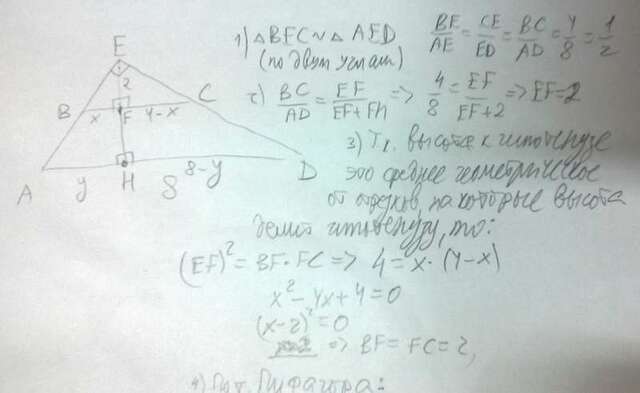 1) △BEC ∾ △AED
(по двум углам)
BE/AE = CE/ED = BC/AD = 4/8 = 1/2
2) BC/AD = EF/(EF+FH) => 4/8 = EF/(EF+2) => EF=2
3) Т.к. высота к гипотенузе
это среднее геометрическое
от отрезков, на которые высота
делит гипотенузу, то:
(EF)² = BF·FC => 4 = x·(4-x)
x² - 4x + 4 = 0
(x-2)² = 0
=> BF = FC = 2,
4) По т. Пифагора:
E
2
B
x
F
4-x
C
A
y
H
8
8-y
D